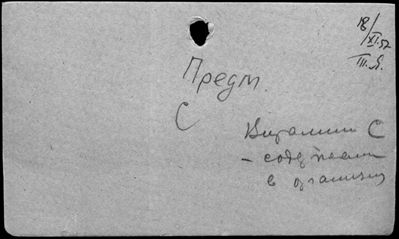 18/XI.52
III.Я.
Предм.
С
Витамин С
- содержание
в организм